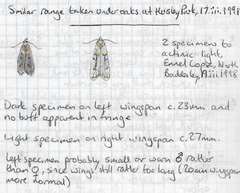 Similar range taken under oaks at Horsley Park, 17.iii.1998
2 specimens to
actinic light,
Emel Copse, North
Baddesley, 19.iii.1998
Dark specimen on left wingspan c.23mm and
no buff apparent in fringe
Light specimen on right wingspan c.27mm.
Left specimen probably small or worn ♂ rather
than ♀, since wings still rather too long (20mm wingspan
more normal)